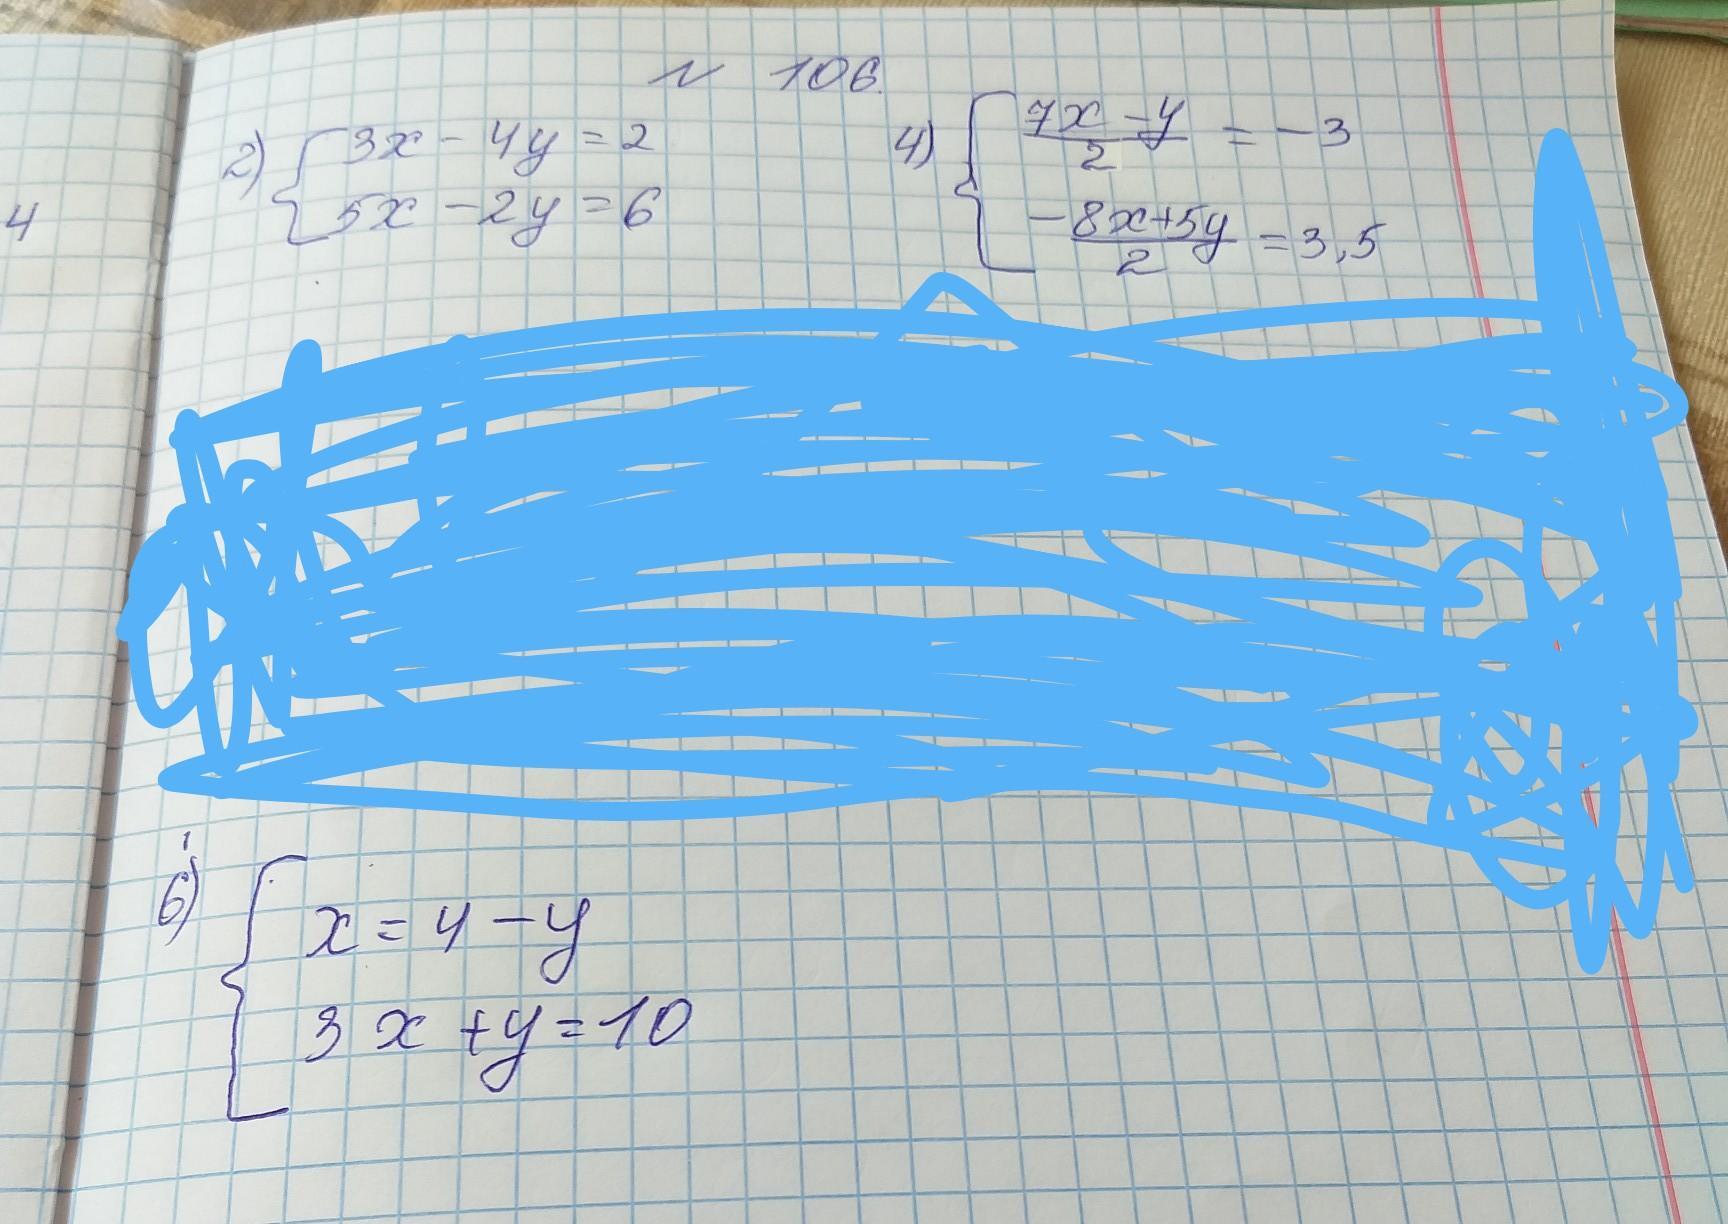 N 106.
2) { 3x - 4y = 2
5x - 2y = 6
4) { 7x - y / 2 = - 3
-8x+5y / 2 = 3,5
4
6) { x = 4 - y
3x + y = 10